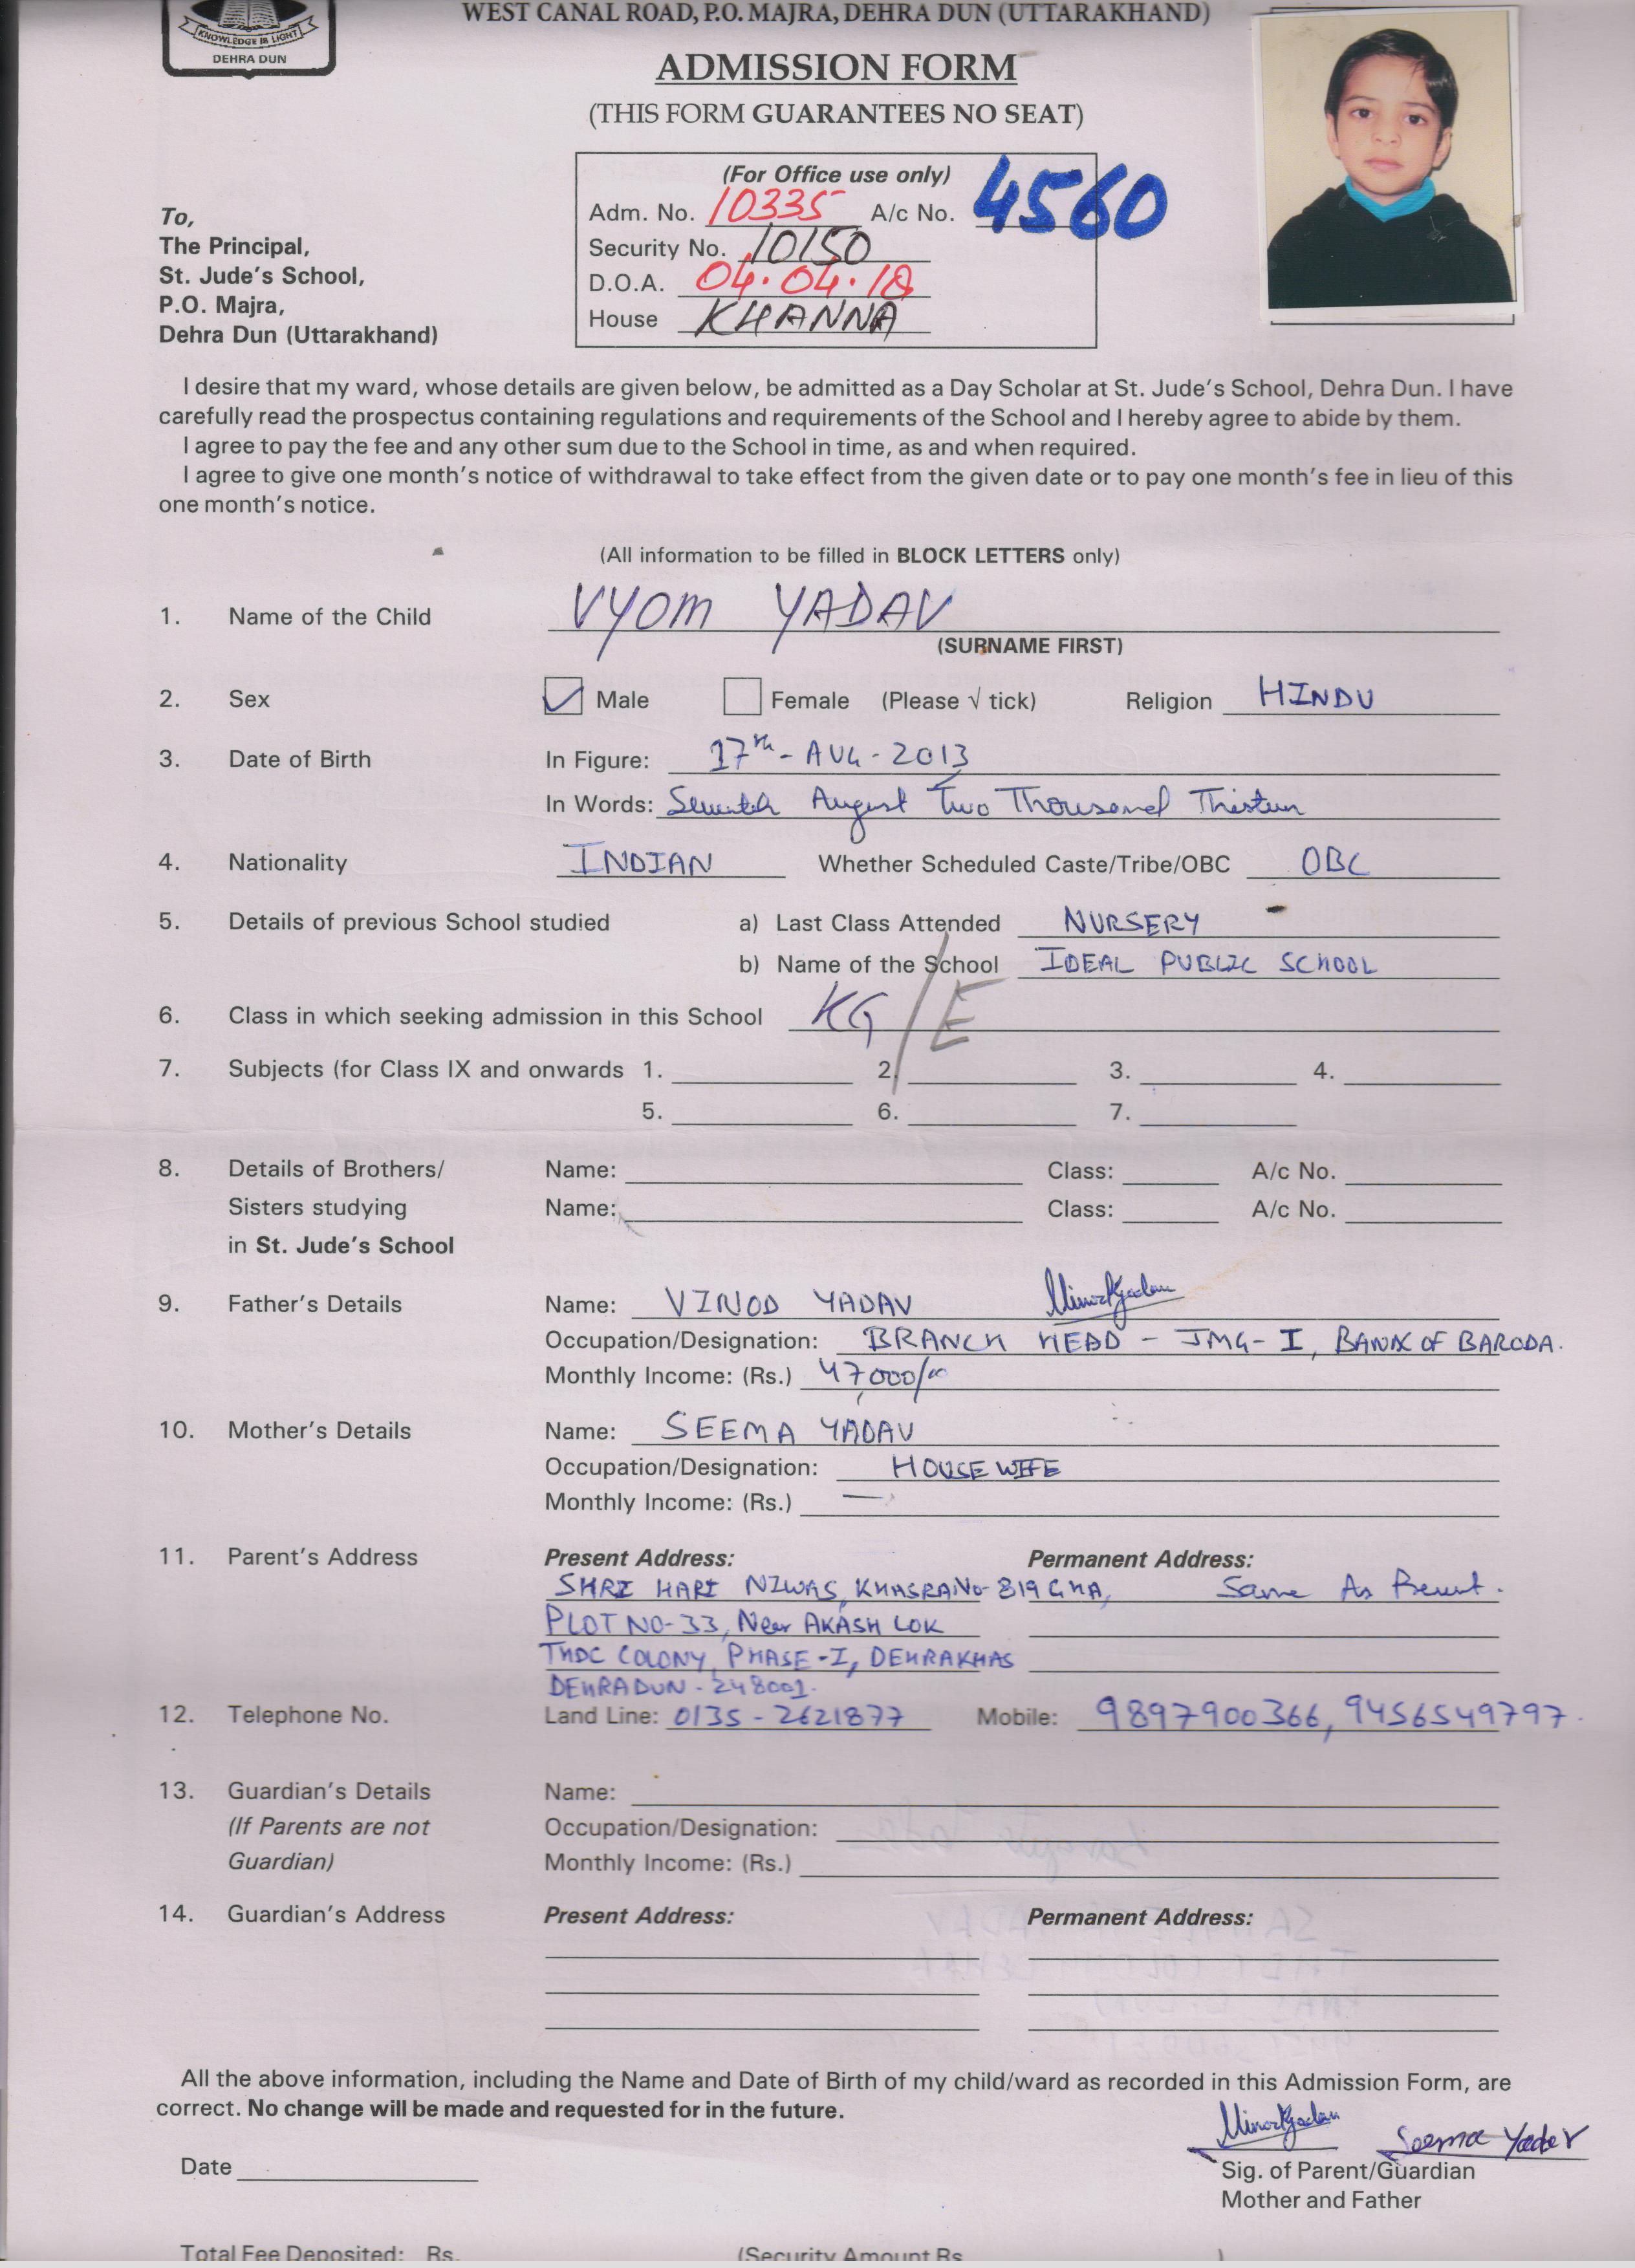 WEST CANAL ROAD, P.O. MAJRA, DEHRA DUN (UTTARAKHAND)
KNOWLEDGE IS LIGHT
DEHRA DUN
ADMISSION FORM
(THIS FORM GUARANTEES NO SEAT)
(For Office use only)
Adm. No. 10335 A/c No. 4560
Security No. 10150
D.O.A. 04.04.18
House KHANNA
To,
The Principal,
St. Jude's School,
P.O. Majra,
Dehra Dun (Uttarakhand)
I desire that my ward, whose details are given below, be admitted as a Day Scholar at St. Jude's School, Dehra Dun. I have
carefully read the prospectus containing regulations and requirements of the School and I hereby agree to abide by them.
I agree to pay the fee and any other sum due to the School in time, as and when required.
I agree to give one month's notice of withdrawal to take effect from the given date or to pay one month's fee in lieu of this
one month's notice.
(All information to be filled in BLOCK LETTERS only)
1. Name of the Child VYOM YADAV
(SURNAME FIRST)
2. Sex Male Female (Please √ tick) Religion HINDU
3. Date of Birth In Figure: 17th - AUG - 2013
In Words: August Two Thousand
4. Nationality INDIAN Whether Scheduled Caste/Tribe/OBC OBC
5. Details of previous School studied a) Last Class Attended NURSERY
b) Name of the School IDEAL PUBLIC SCHOOL
6. Class in which seeking admission in this School KG/E
7. Subjects (for Class IX and onwards 1. 2. 3. 4.
5. 6. 7.
8. Details of Brothers/ Name: Class: A/c No.
Sisters studying Name: Class: A/c No.
in St. Jude's School
9. Father's Details Name: VINOD YADAV
Occupation/Designation: BRANCH HEAD - JMG-I, BANK OF BARODA.
Monthly Income: (Rs.) 47,000/00
10. Mother's Details Name: SEEMA YADAV
Occupation/Designation: HOUSE WIFE
Monthly Income: (Rs.) —
11. Parent's Address Present Address: Permanent Address:
SHRI HARI NIWAS, KHASRA NO- 819 GHA, Same As Present.
PLOT NO-33, Near AKASH LOK
THDC COLONY, PHASE -I, DEHRAKHAS
DEHRADUN - 248001.
12. Telephone No. Land Line: 0135 - 2621877 Mobile: 9897900366, 9456549797.
13. Guardian's Details Name:
(If Parents are not Occupation/Designation:
Guardian) Monthly Income: (Rs.)
14. Guardian's Address Present Address: Permanent Address:
All the above information, including the Name and Date of Birth of my child/ward as recorded in this Admission Form, are
correct. No change will be made and requested for in the future.
Seema Yadav
Date Sig. of Parent/Guardian
Mother and Father
Total Fee Deposited: Rs. (Security Amount Rs. )